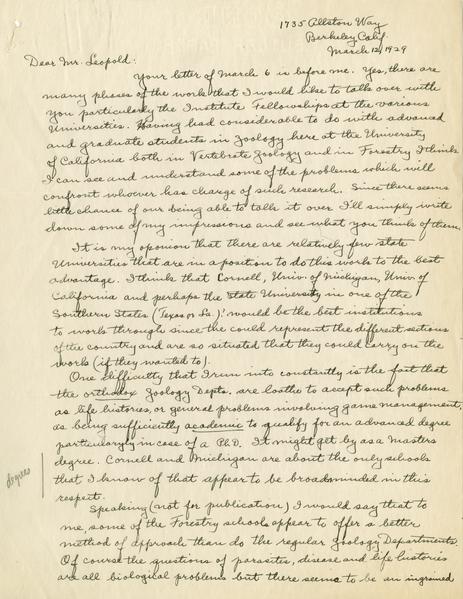 1735 Allston Way
Berkeley, Calif.
March 12, 1929
Dear Mr. Leopold:
Your letter of March 6 is before me. Yes, there are
many phases of the work that I would like to talk over with
you particularly the Institute Fellowships at the various
Universities. Having had considerable to do with advanced
and graduate students in Zoology here at the University
of California both in Vertebrate Zoology and in Forestry I think
I can see and understand some of the problems which will
confront whoever has charge of such research. Since there seems
little chance of our being able to talk it over I'll simply write
down some of my impressions and see what you think of them.
It is my oponion that there are relatively few state
Universities that are in a position to do this work to the best
advantage. I think that Cornell, Univ. of Michigan, Univ. of
California and perhaps the State University in one of the
Southern States (Texas or La.)? would be the best institutions
to work through since the could represent the different setions
of the country and are so situated that they could carry on the
work (if they wanted to).
One difficulty that I run into constantly is the fact that
the orthodox Zoology Depts. are loathe to accept such problems
as life histories, or general problems involving game management,
as being sufficiently academic to qualify for an advanced degree
particularyly in case of a Ph.D. It might get by as a Masters
degree. Cornell and Michigan are about the only schools
that I know of that appear to be broadminded in this
respect.
degrees
Speaking (not for publication) I would say that to
me, some of the Forestry schools appear to offer a better
method of approach than do the regular Zoology Departments.
Of course the questions of parasites, disease and life histories
are all biological problems but there seems to be an ingrained